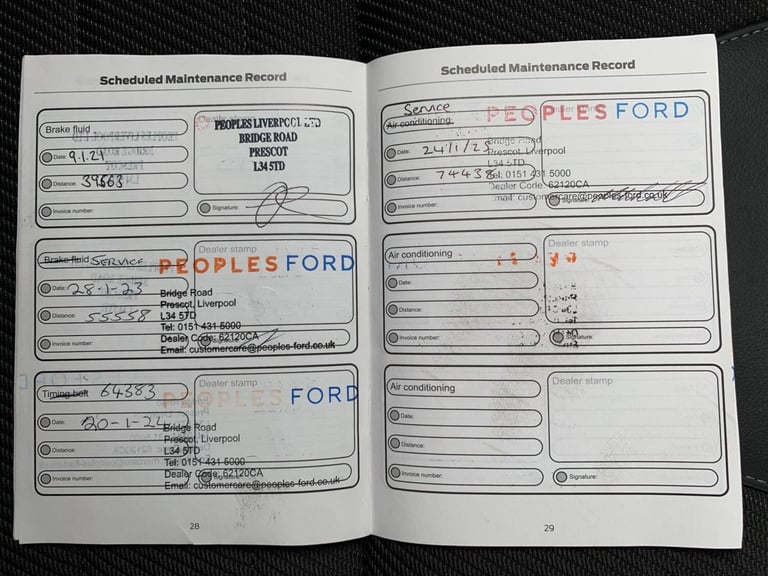 Scheduled Maintenance Record
Brake fluid
Date: 9.1.21
Distance: 39563
Invoice number:
PEOPLES LIVERPOOL LTD
BRIDGE ROAD
PRESCOT
L34 5TD
Signature:
Brake fluid SERVICE
Date: 28-1-23
Distance: 55558
Invoice number:
Dealer stamp
PEOPLES FORD
Bridge Road
Prescot, Liverpool
L34 5TD
Tel: 0151 431 5000
Dealer Code: 62120CA
Email: customercare@peoples-ford.co.uk
Timing belt 64383
Date: 20-1-24
Distance:
Invoice number:
Dealer stamp
PEOPLES FORD
Bridge Road
Prescot, Liverpool
L34 5TD
Tel: 0151 431 5000
Dealer Code: 62120CA
Email: customercare@peoples-ford.co.uk
28
Scheduled Maintenance Record
Service
Air conditioning
Date: 24/1/25
Distance: 74438
Invoice number:
PEOPLES FORD
Bridge Road
Prescot, Liverpool
L34 5TD
Tel: 0151 431 5000
Dealer Code: 62120CA
Email: customercare@peoples-ford.co.uk
Air conditioning
Date:
Distance:
Invoice number:
Dealer stamp
Signature:
Air conditioning
Date:
Distance:
Invoice number:
Dealer stamp
Signature:
29